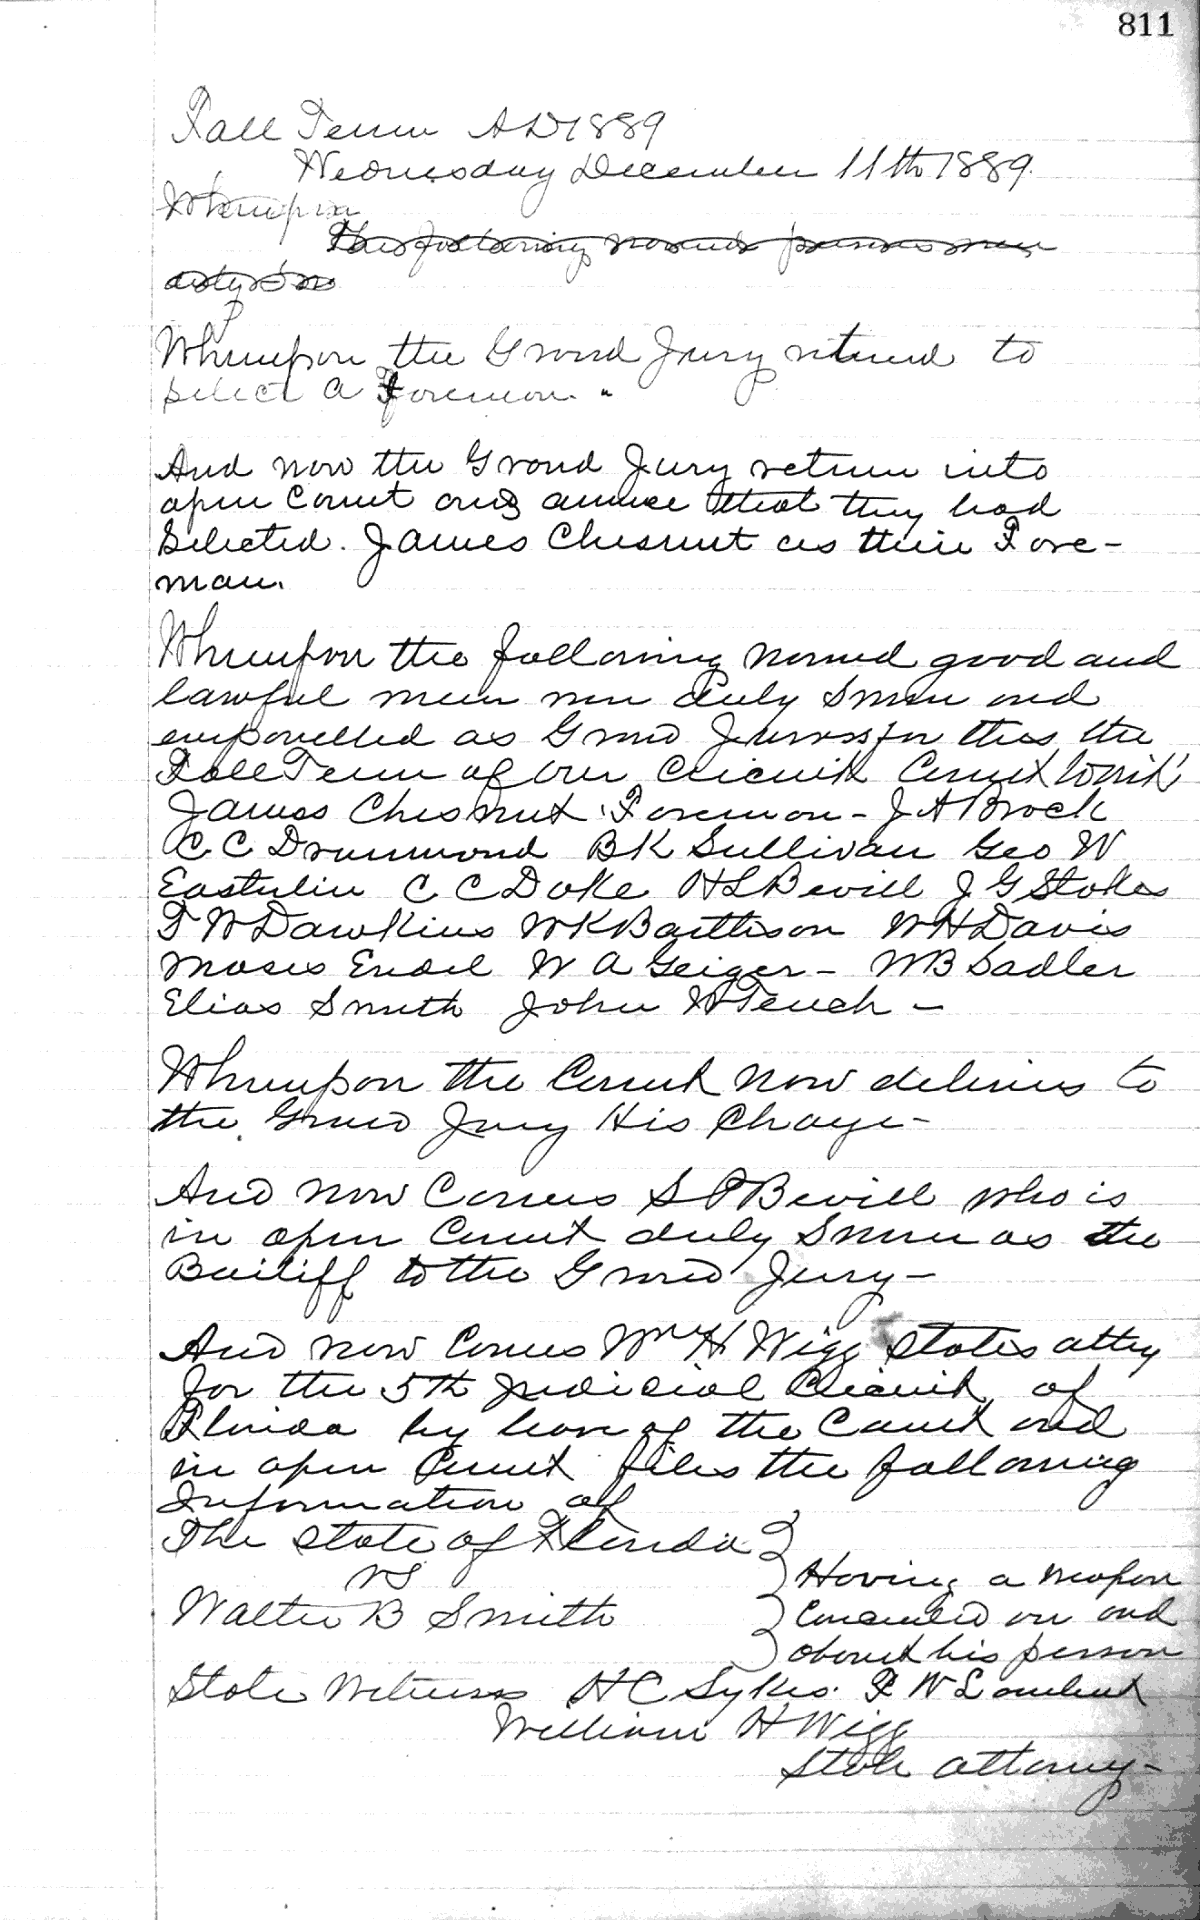 811
Fall Term AD 1889
Wednesday December 11th 1889.
Whereupon
The following named persons were
duly
Whereupon the Grand Jury retired to
select a Foreman.
And now the Grand Jury return into
open Court and announce that they had
Selected. James Chesnut as their Fore-
man.
Whereupon the following named good and
lawful men were duly Sworn and
empanelled as Grand Jurors for this the
Fall Term of our Circuit Court to wit
James Chesnut Foreman - J A Brock
C C Drummond B K Sullivan Geo W
Easterlin C C Doke H L Bevill J G Stokes
F W Dawkins W K Battison W H Davis
Moses Endel W A Geiger - W B Sadler
Elias Smith John W Tench -
Whereupon the Court now delivers to
the Grand Jury His Charge -
And now Comes S P Bevill who is
in open Court duly Sworn as the
Bailiff to the Grand Jury -
And now Comes Wm H Wigg States atty
for the 5th Judicial Circuit of
Florida by leave of the Court and
in open Court files the following
Information of
The State of Florida
vs
Having a weapon
Walter B Smith
Concealed on and
about his person
State Witness H C Sykes. F W
William H Wigg
State attorney -